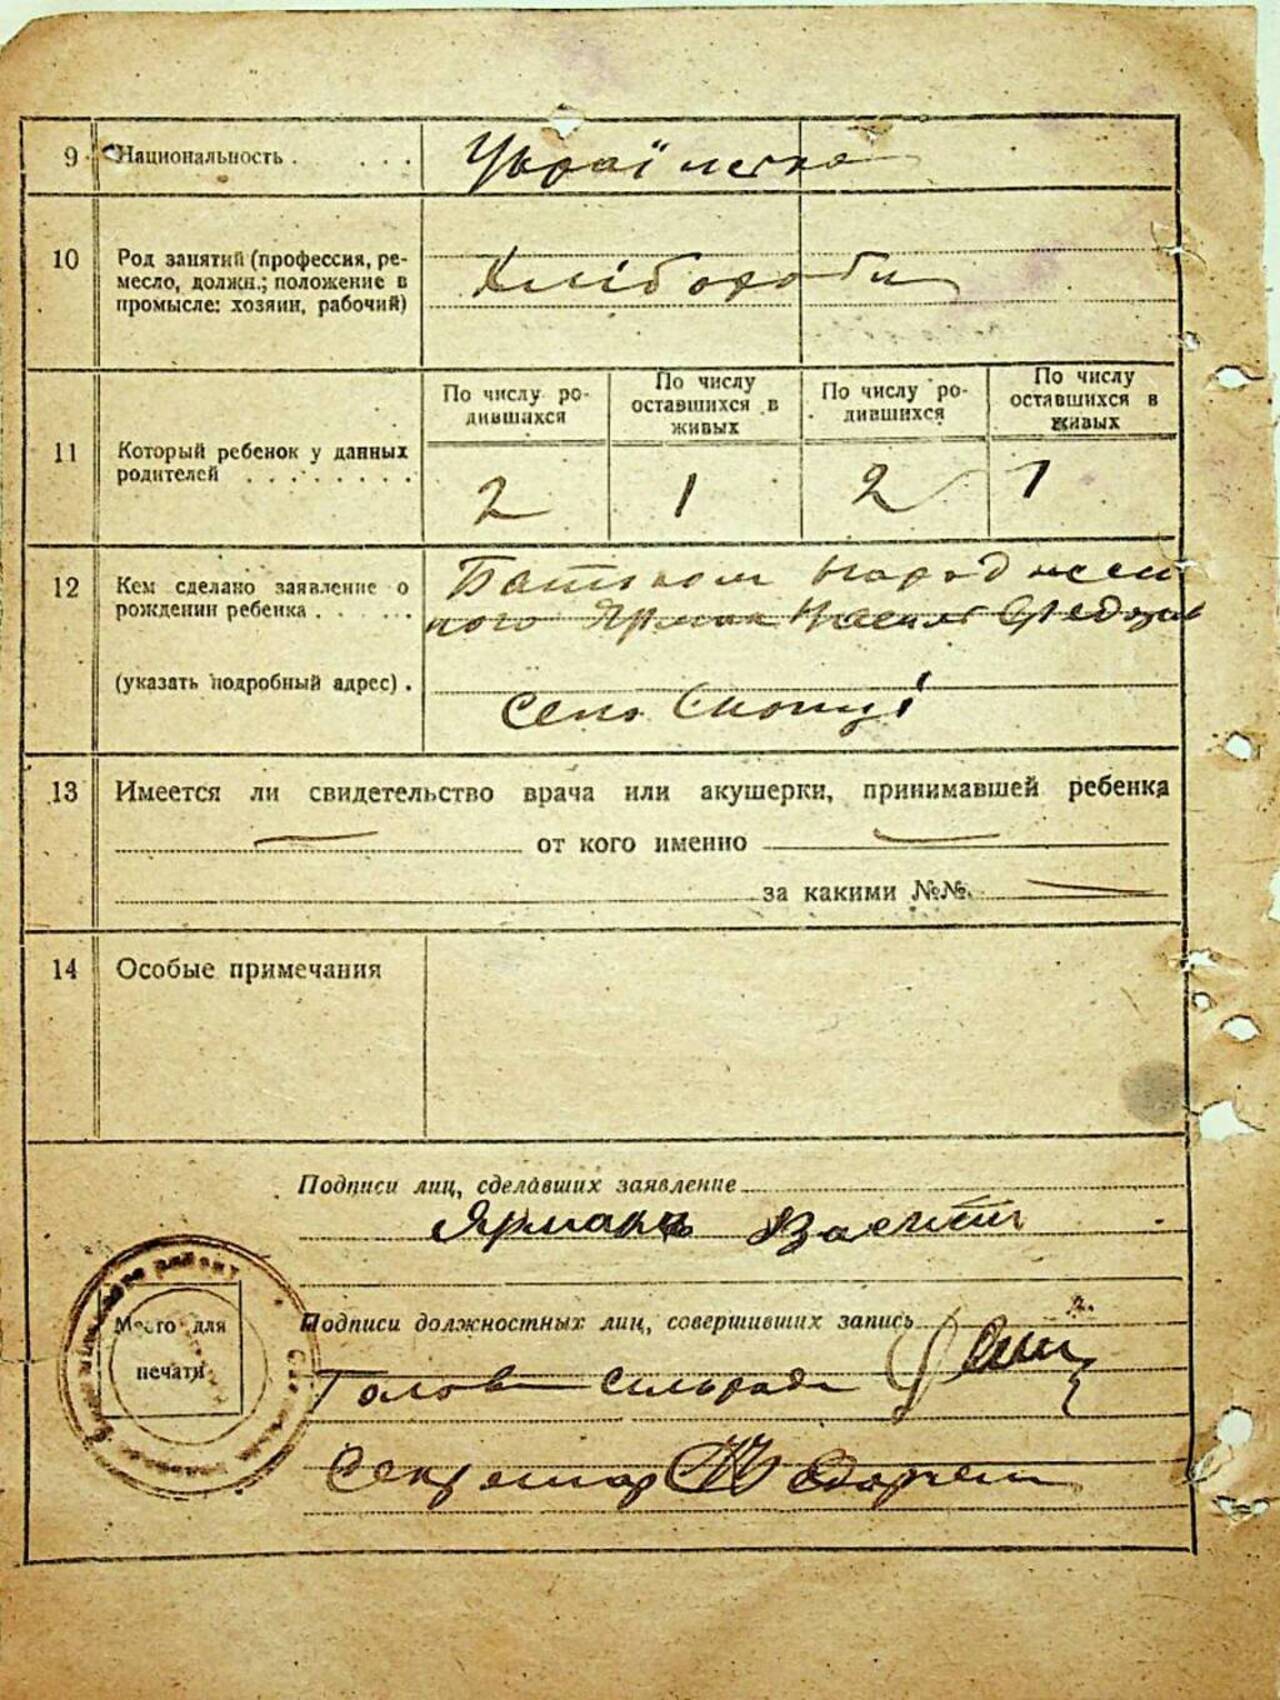 9 Национальность . . . . .
Українська
10 Род занятий (профессия, ре-
месло, должн.; положение в
промысле: хозяин, рабочий)
Хлібороби
По числу ро-
дившихся
По числу
оставшихся в
живых
По числу ро-
дившихся
По числу
оставшихся в
живых
11 Который ребенок у данных
родителей . . . . . . . .
2 1 2 1
12 Кем сделано заявление о
рождении ребенка . . . . .
Батьком
ного Ярмак
(указать подробный адрес) .
село Скопці
13 Имеется ли свидетельство врача или акушерки, принимавшей ребенка
от кого именно
за какими №№.
14 Особые примечания
Подписи лиц, сделавших заявление
Ярмакъ
Подписи должностных лиц, совершивших запись
Голова сільради
Секретар
Место для
печати
району